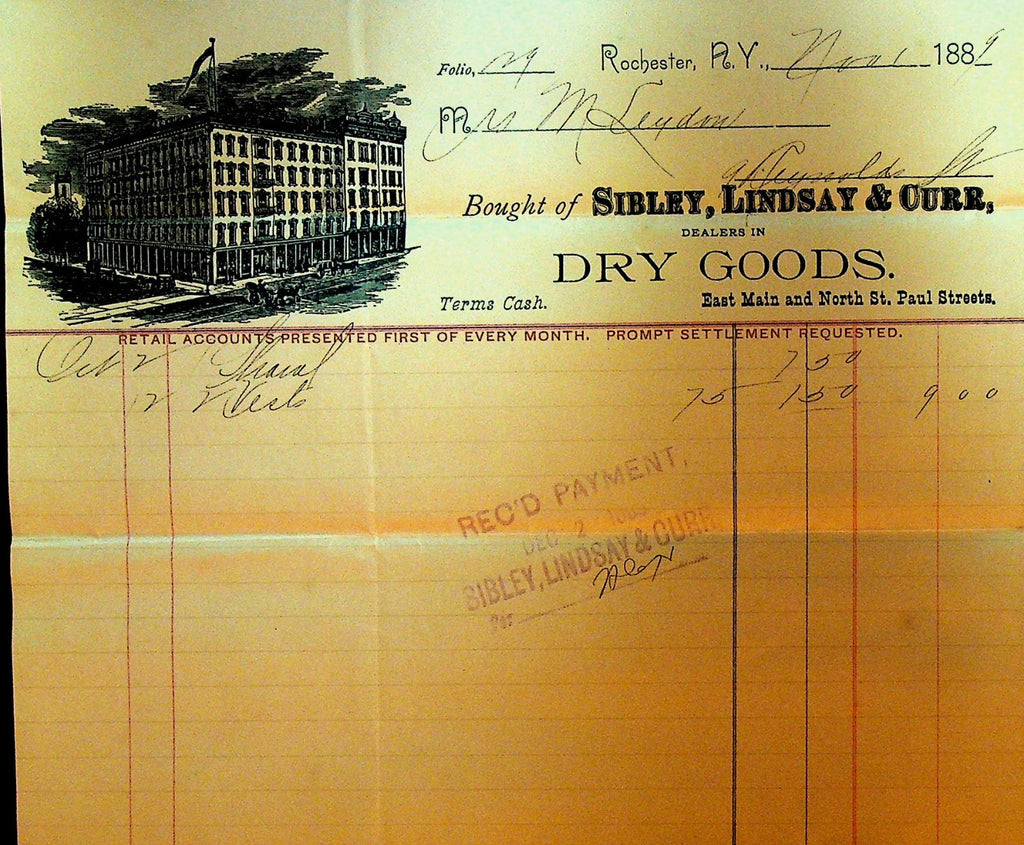 Folio, Rochester, N.Y., Nov 1 1889
Mrs M Leydon
9 Reynolds St
Bought of SIBLEY, LINDSAY & CURR,
DEALERS IN
DRY GOODS.
Terms Cash. East Main and North St. Paul Streets.
RETAIL ACCOUNTS PRESENTED FIRST OF EVERY MONTH. PROMPT SETTLEMENT REQUESTED.
Oct 2 1 Shawl 7 50
12 2 Vests 75 1 50 9 00
REC'D PAYMENT,
DEC 2
SIBLEY, LINDSAY & CURR
Per